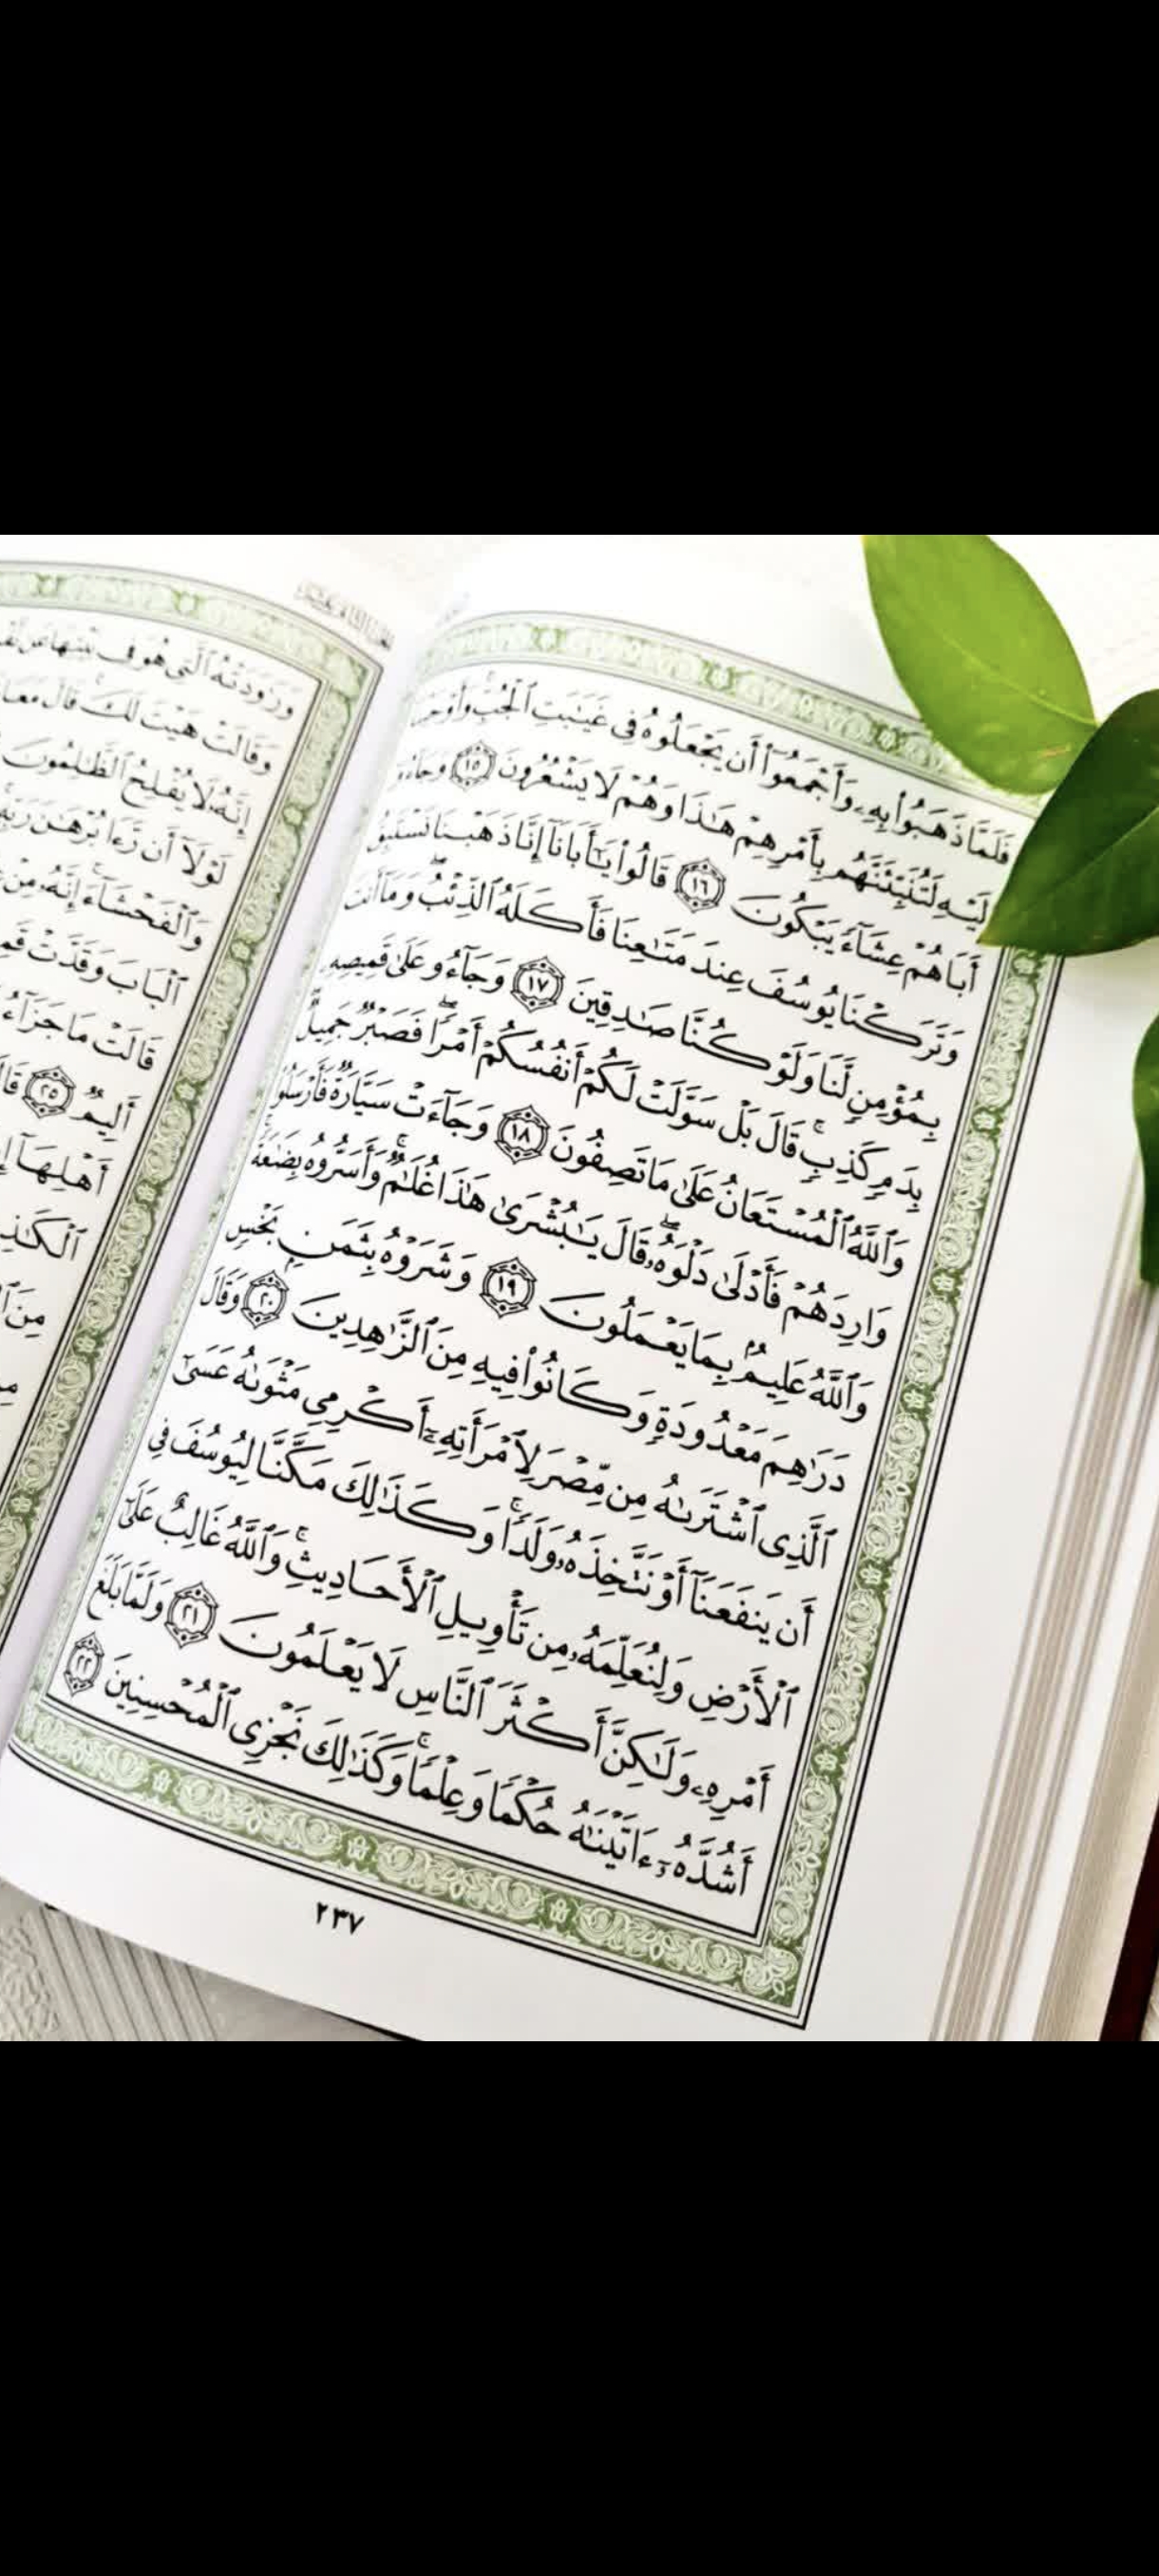 فَلَمَّا ذَهَبُوا۟ بِهِۦ وَأَجْمَعُوٓا۟ أَن يَجْعَلُوهُ فِى غَيَٰبَتِ ٱلْجُبِّ وَأَوْحَيْنَآ
إِلَيْهِ لَتُنَبِّئَنَّهُم بِأَمْرِهِمْ هَٰذَا وَهُمْ لَا يَشْعُرُونَ ١٥ وَجَآءُوٓ
أَبَاهُمْ عِشَآءً يَبْكُونَ ١٦ قَالُوا۟ يَٰٓأَبَانَآ إِنَّا ذَهَبْنَا نَسْتَبِقُ
وَتَرَكْنَا يُوسُفَ عِندَ مَتَٰعِنَا فَأَكَلَهُ ٱلذِّئْبُ ۖ وَمَآ أَنتَ
بِمُؤْمِنٍ لَّنَا وَلَوْ كُنَّا صَٰدِقِينَ ١٧ وَجَآءُو عَلَىٰ قَمِيصِهِۦ
بِدَمٍ كَذِبٍ ۚ قَالَ بَلْ سَوَّلَتْ لَكُمْ أَنفُسُكُمْ أَمْرًا ۖ فَصَبْرٌ جَمِيلٌ ۖ
وَٱللَّهُ ٱلْمُسْتَعَانُ عَلَىٰ مَا تَصِفُونَ ١٨ وَجَآءَتْ سَيَّارَةٌ فَأَرْسَلُوا۟
وَارِدَهُمْ فَأَدْلَىٰ دَلْوَهُۥ ۖ قَالَ يَٰبُشْرَىٰ هَٰذَا غُلَٰمٌ ۚ وَأَسَرُّوهُ بِضَٰعَةً ۚ
وَٱللَّهُ عَلِيمٌۢ بِمَا يَعْمَلُونَ ١٩ وَشَرَوْهُ بِثَمَنٍۭ بَخْسٍ
دَرَٰهِمَ مَعْدُودَةٍ وَكَانُوا۟ فِيهِ مِنَ ٱلزَّٰهِدِينَ ٢٠ وَقَالَ
ٱلَّذِى ٱشْتَرَىٰهُ مِن مِّصْرَ لِٱمْرَأَتِهِۦٓ أَكْرِمِى مَثْوَىٰهُ عَسَىٰٓ
أَن يَنفَعَنَآ أَوْ نَتَّخِذَهُۥ وَلَدًا ۚ وَكَذَٰلِكَ مَكَّنَّا لِيُوسُفَ فِى
ٱلْأَرْضِ وَلِنُعَلِّمَهُۥ مِن تَأْوِيلِ ٱلْأَحَادِيثِ ۚ وَٱللَّهُ غَالِبٌ عَلَىٰٓ
أَمْرِهِۦ وَلَٰكِنَّ أَكْثَرَ ٱلنَّاسِ لَا يَعْلَمُونَ ٢١ وَلَمَّا بَلَغَ
أَشُدَّهُۥٓ ءَاتَيْنَٰهُ حُكْمًا وَعِلْمًا ۚ وَكَذَٰلِكَ نَجْزِى ٱلْمُحْسِنِينَ ٢٢
٢٣٧
وَرَٰوَدَتْهُ ٱلَّتِى هُوَ فِى بَيْتِهَا عَن
وَقَالَتْ هَيْتَ لَكَ ۚ قَالَ مَعَاذَ
إِنَّهُۥ لَا يُفْلِحُ ٱلظَّٰلِمُونَ
لَوْلَآ أَن رَّءَا بُرْهَٰنَ رَبِّهِۦ ۚ
وَٱلْفَحْشَآءَ ۚ إِنَّهُۥ مِنْ
ٱلْبَابَ وَقَدَّتْ
قَالَتْ مَا جَزَآءُ
أَلِيمٌ ٢٥
أَهْلِهَآ